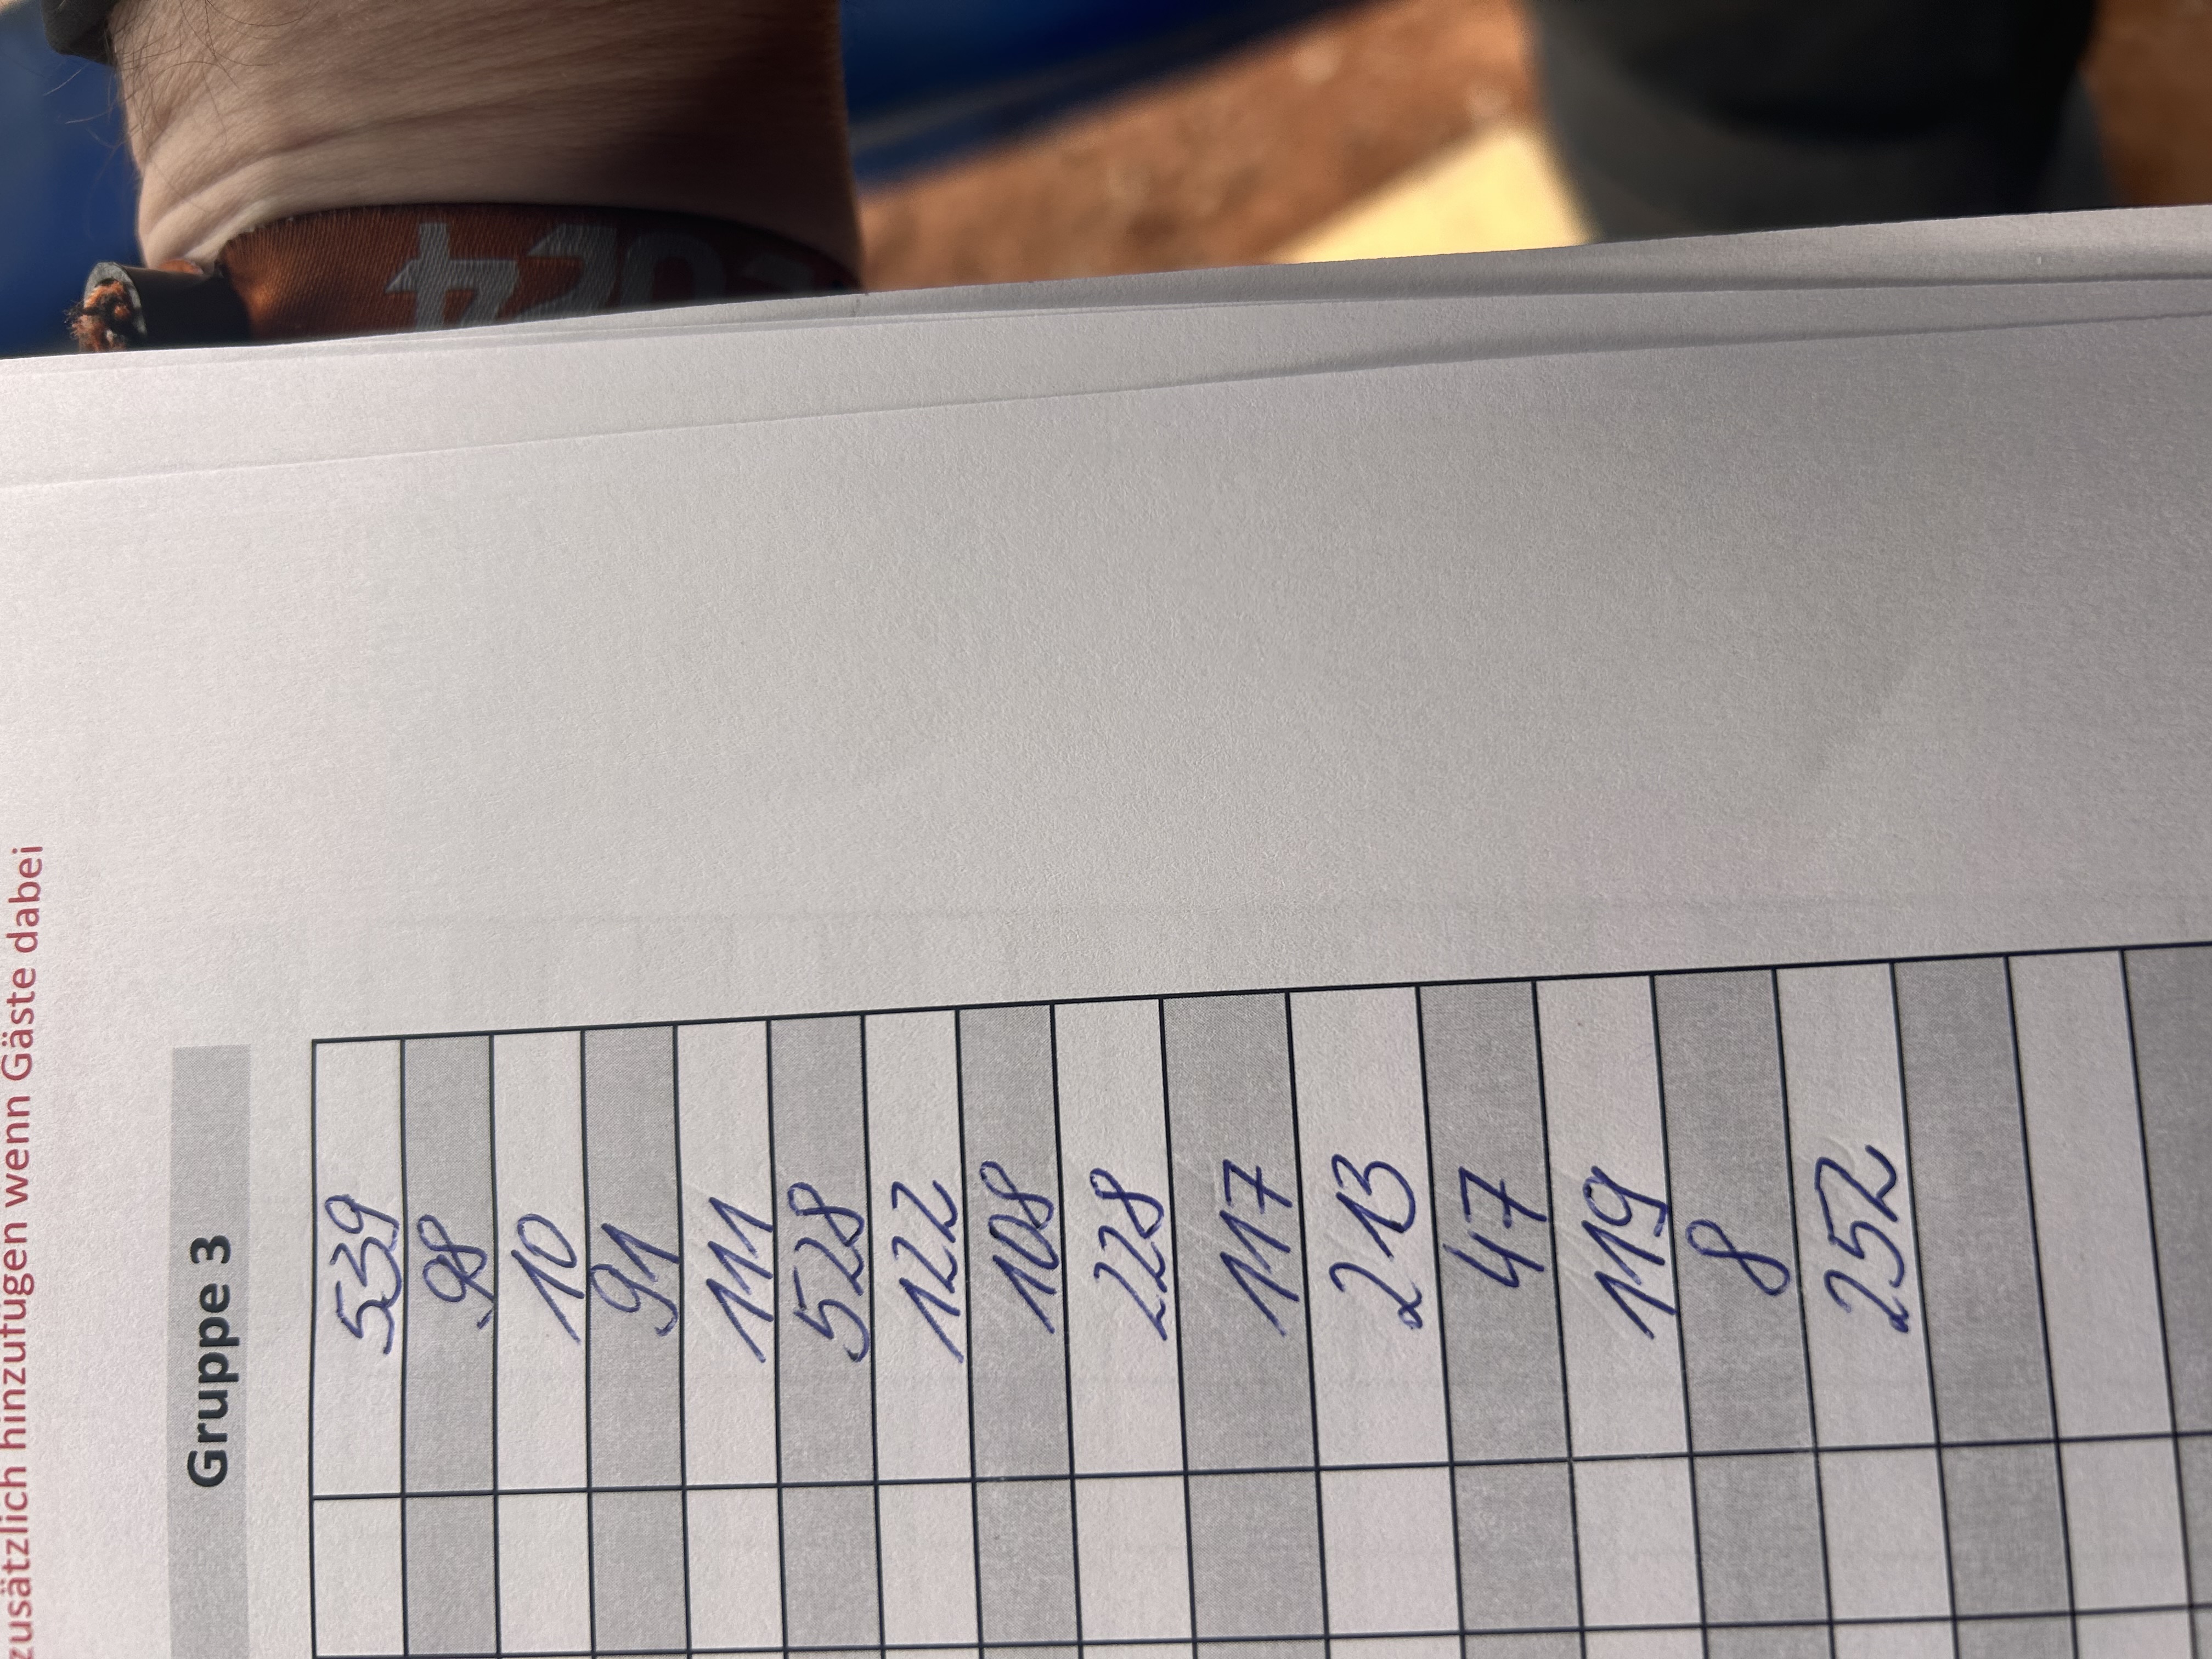 zusätzlich hinzufügen wenn Gäste dabei
Gruppe 3
539
98
10
91
111
528
122
108
228
117
213
47
119
8
252